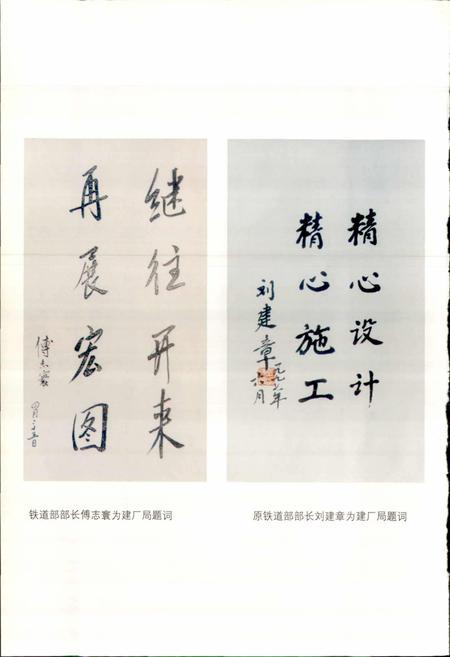 继往开来
再展宏图
傅志寰
四月二十五日
精心设计
精心施工
刘建章
一九九六年
六月
铁道部部长傅志寰为建厂局题词
原铁道部部长刘建章为建厂局题词